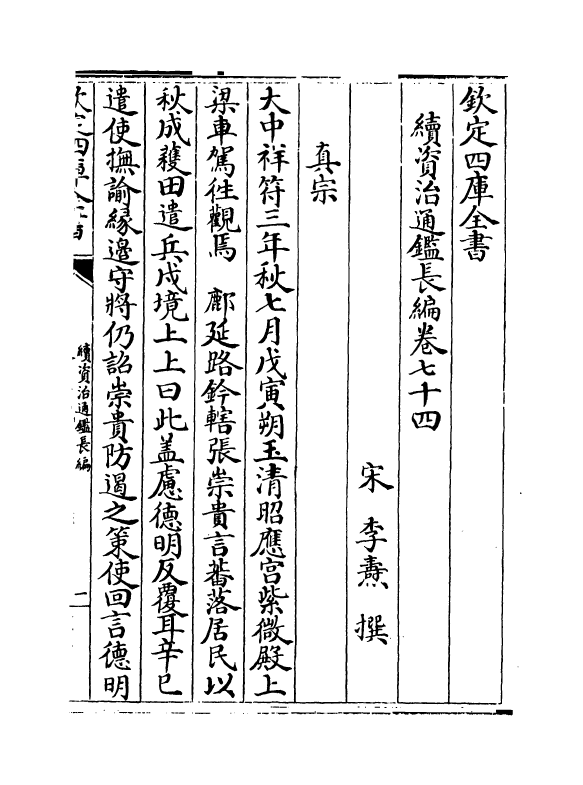 欽定四庫全書
續資治通鑑長編卷七十四
宋 李燾 撰
真宗
大中祥符三年秋七月戊寅朔玉清昭應宫紫微殿上
梁車駕徃觀焉 鄜延路鈐轄張崇貴言蕃落居民以
秋成穫田遣兵戍境上上曰此盖慮德明反覆耳辛巳
遣使撫諭緣邊守將仍詔崇貴防遏之策使回言德明
欽定四庫全書
續資治通鑑長編